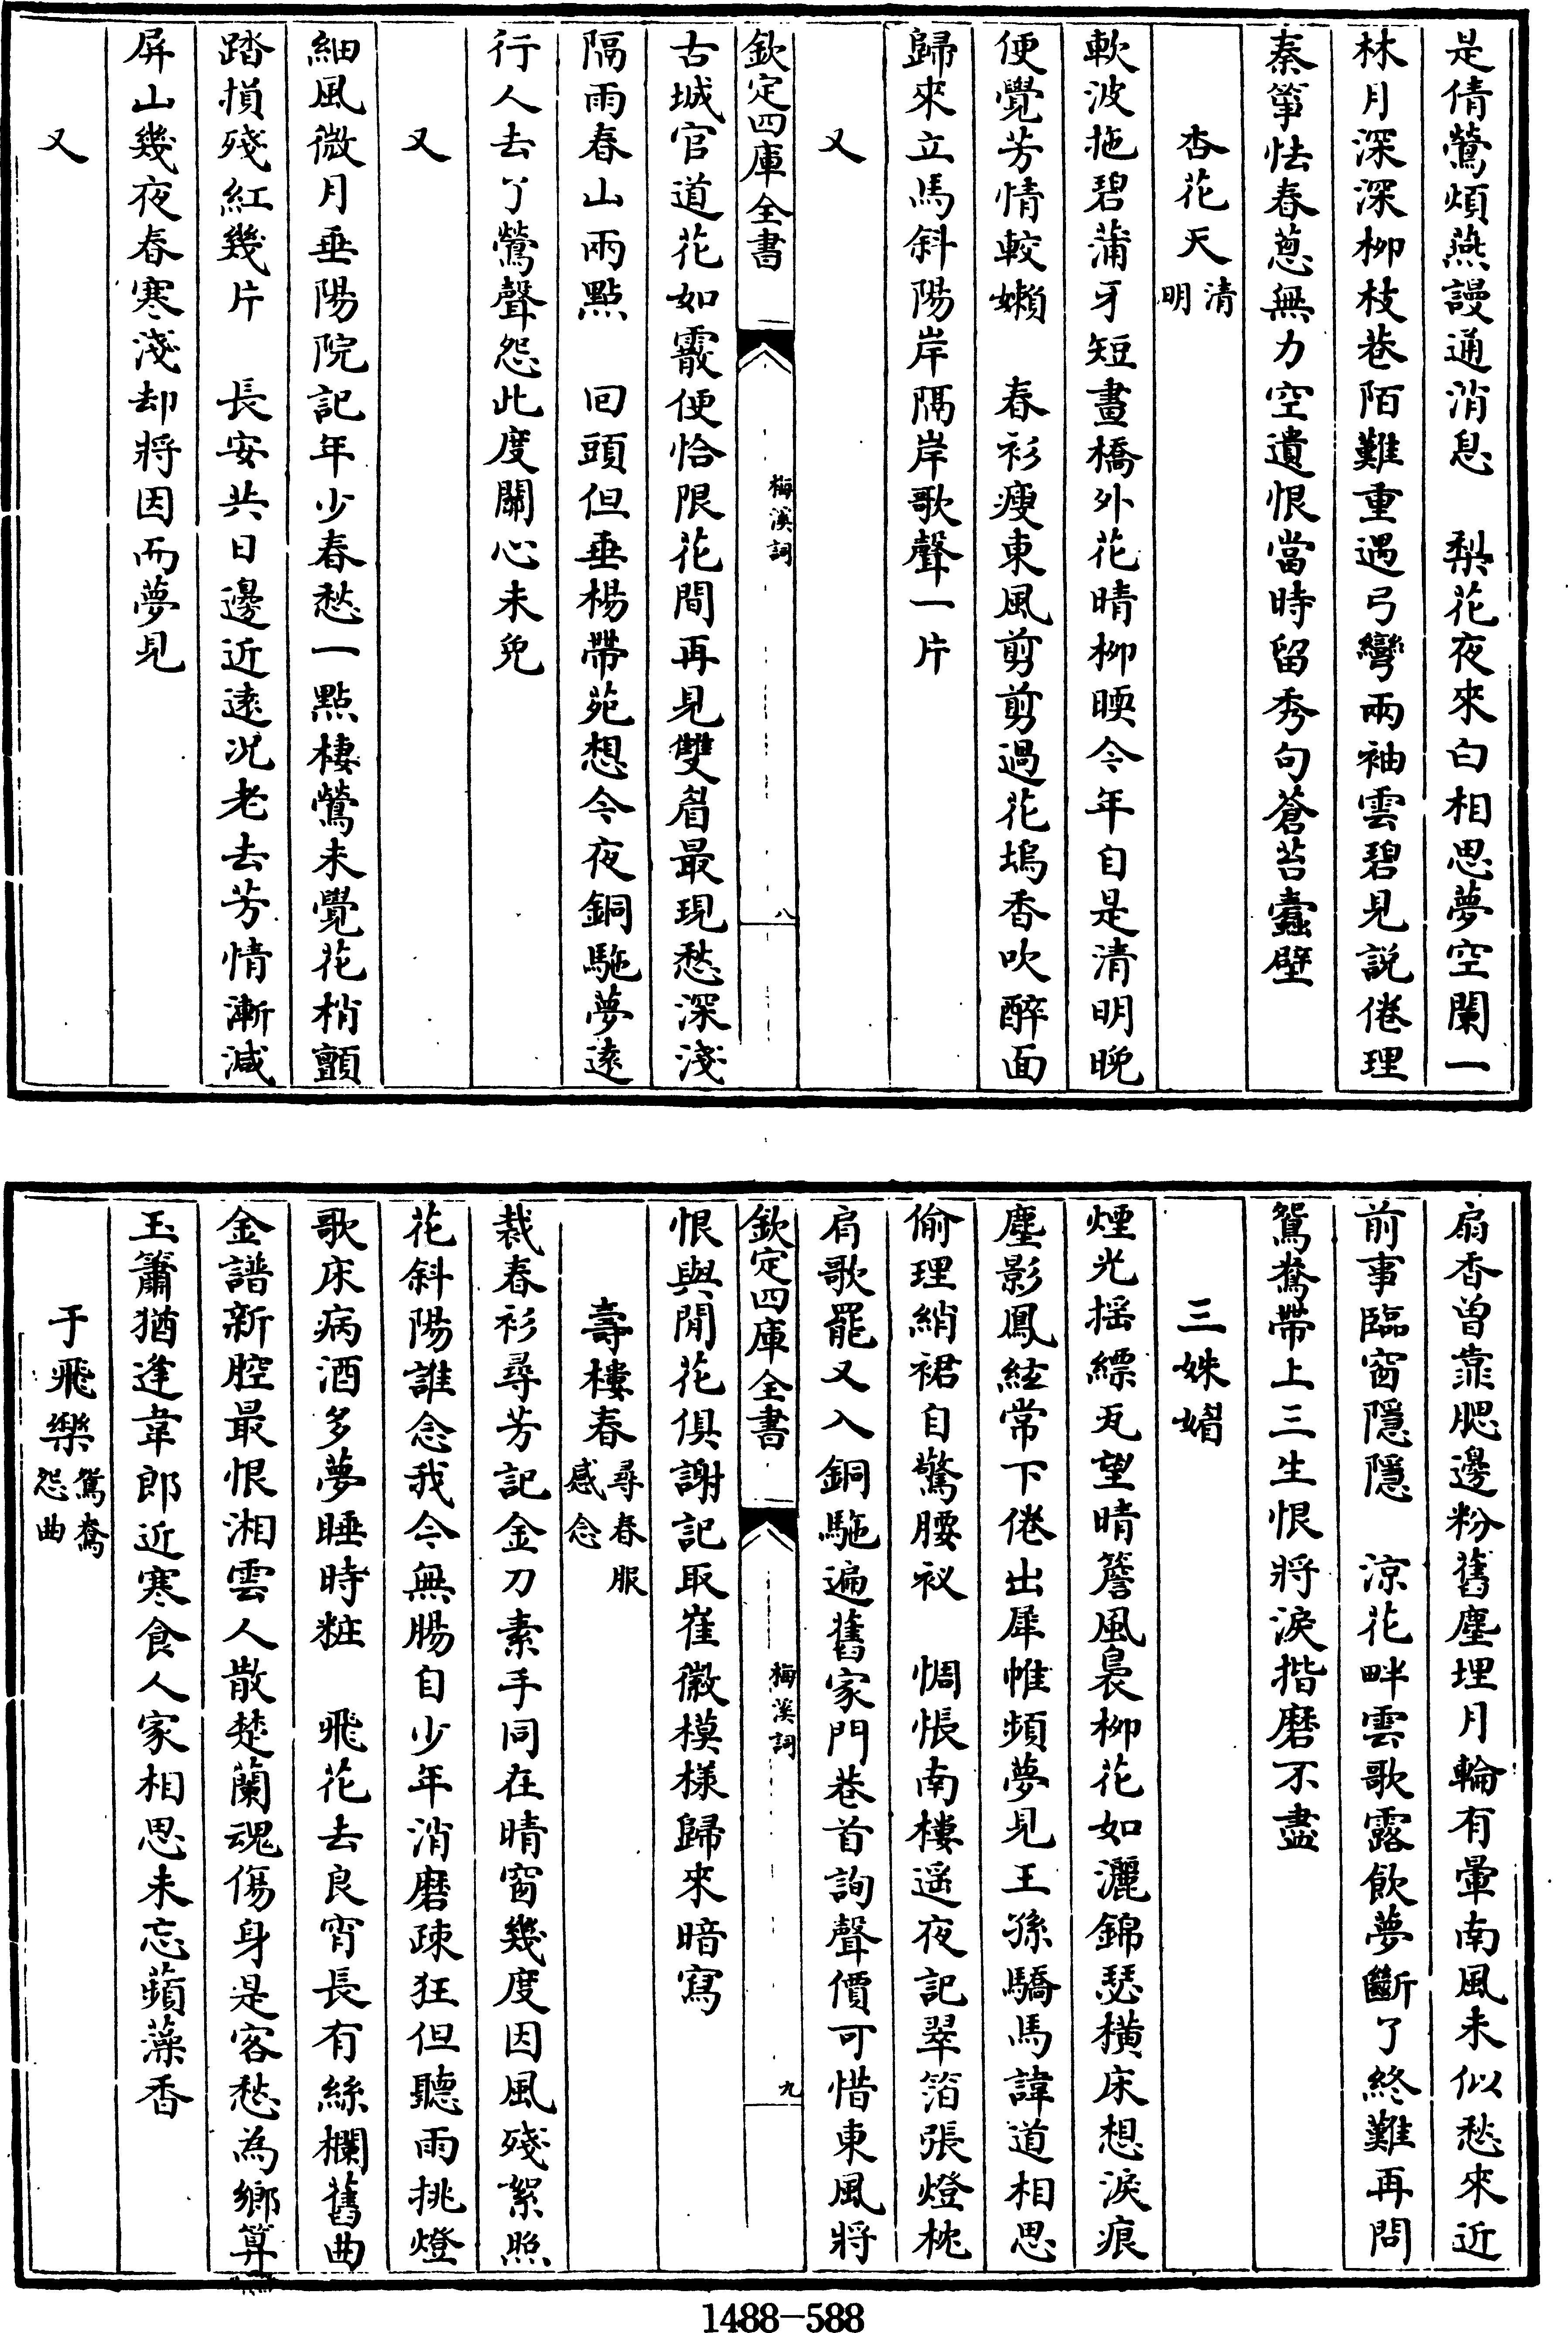 是倩鶯煩燕謾通消息　梨花夜來白相思夢空闌一
林月深深柳枝巷陌難重遇弓彎兩袖雲碧見説倦理
秦箏怯春蔥無力空遺恨當時留秀句蒼苔蠹壁
杏花天清明
軟波拖碧蒲牙短畫橋外花晴柳暖今年自是清明晚
便覺芳情較嬾　春衫瘦東風剪剪過花塢香吹醉面
歸來立馬斜陽岸隔岸歌聲一片
又
欽定四庫全書
梅溪詞
八
古城官道花如霰便恰限花間再見雙眉最現愁深淺
隔雨春山兩點　回頭但垂楊帶苑想今夜銅駞夢遠
行人去了鶯聲怨此度關心未免
又
細風微月垂陽院記年少春愁一點棲鶯未覺花梢顫
踏損殘紅幾片　長安共日邊近遠况老去芳情漸減
屏山幾夜春寒淺却將因而夢見
又
扇香曾靠腮邊粉舊塵埋月輪有暈南風未似愁來近
前事臨窗隱隱　涼花畔雲歌露飲夢斷了終難再問
鴛鴦帶上三生恨將淚揩磨不盡
三姝媚
煙光揺縹瓦望晴簷風裊柳花如灑錦瑟橫床想淚痕
塵影鳳絃常下倦出犀帷頻夢見王孫驕馬諱道相思
偷理綃裙自驚腰衩　惆悵南樓遥夜記翠箔張燈枕
肩歌罷又入銅駞遍舊家門巷首詢聲價可惜東風將
欽定四庫全書
梅溪詞
九
恨與閒花俱謝記取崔徽模樣歸來暗寫
壽樓春尋春服感念
裁春衫尋芳記金刀素手同在晴窗幾度因風殘絮照
花斜陽誰念我今無腸自少年消磨疎狂但聽雨挑燈
歌床病酒多夢睡時粧　飛花去良宵長有絲欄舊曲
金譜新腔最恨湘雲人散楚蘭魂傷身是客愁為鄉算
玉簫猶逢韋郎近寒食人家相思未忘蘋藻香
于飛樂鴛鴦怨曲
1488-588